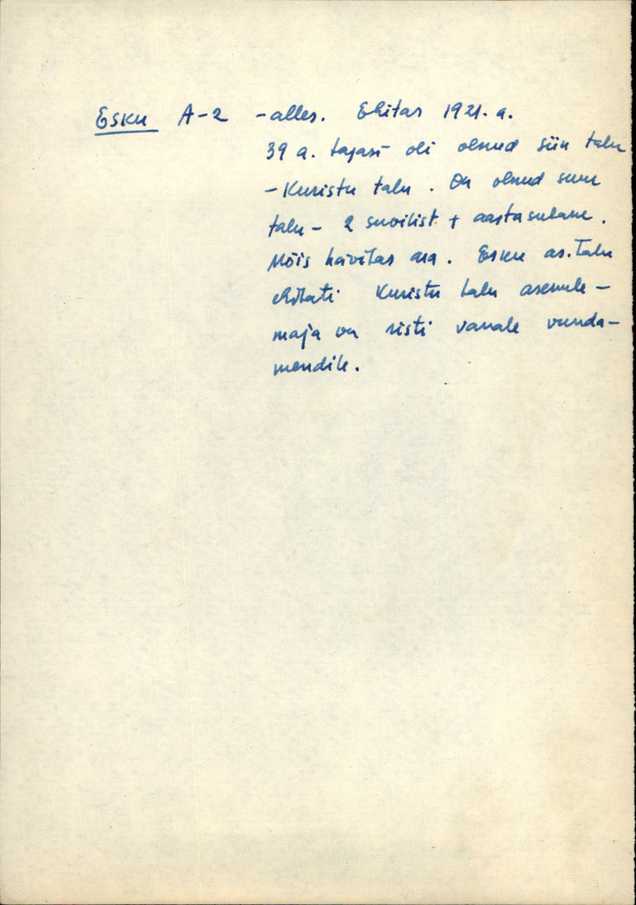 Esku A-2 - alles. Ehitas 1921. a.
39 a. tagasi oli olnud siin talu
- Kuristu talu. On olnud suur
talu - 2 suvilist + aastasulane.
Mõis hävitas ära. Esku as. Talu
ehitati Kuristu talu asemele -
maja on risti vanale vunda-
mendile.